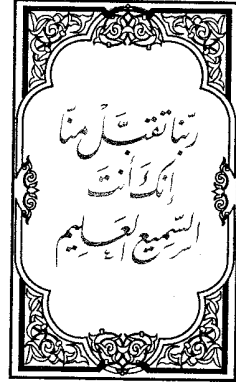 ربّنا تقبّل منّا
إنّك أنتَ
السّميع العَليم